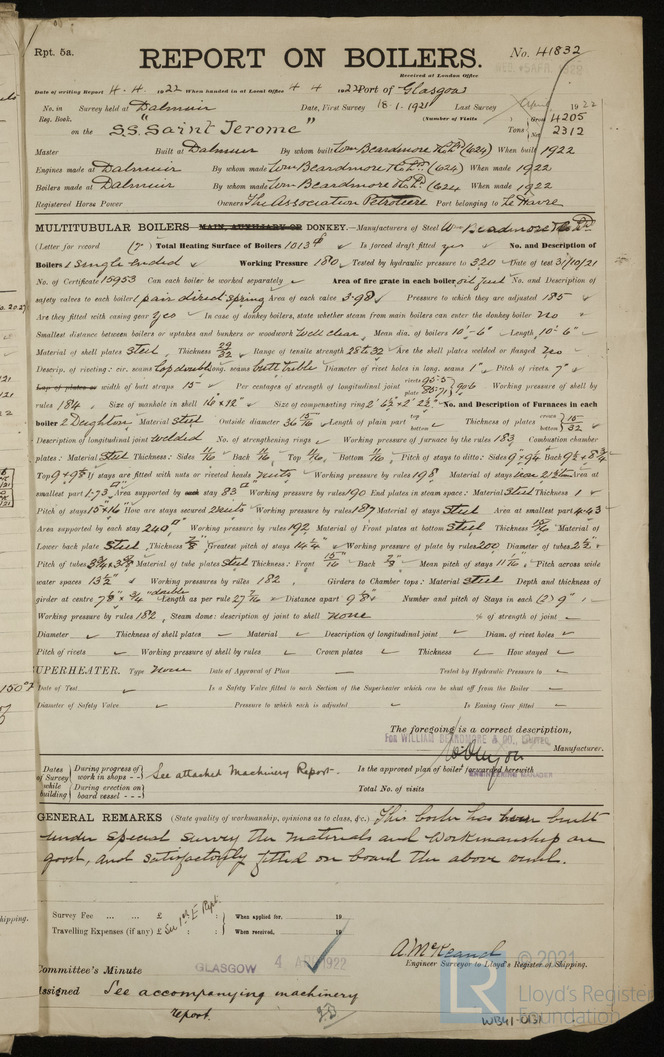 Rpt. 5a.
REPORT ON BOILERS.
No. 41832
Received at London Office
Date of writing Report 4. 4. 1922 When handed in at Local Office 4 4 1922 Port of Glasgow
No. in Survey held at Dalmuir Date, First Survey 18.1.1921 Last Survey 1922
Reg. Book. (Number of Visits
on the S.S. "Saint Jerome" Tons Gross 4205 Net 2312
Master Built at Dalmuir By whom built Wm Beardmore & Co Ld (624) When built 1922
Engines made at Dalmuir By whom made Wm Beardmore & Co Ld (624) When made 1922
Boilers made at Dalmuir By whom made Wm Beardmore & Co Ld (624 When made 1922
Registered Horse Power Owners The Association Petroliere Port belonging to Le Havre
MULTITUBULAR BOILERS MAIN, AUXILIARY OR DONKEY.—Manufacturers of Steel Wm Beardmore & Co Ld
(Letter for record ) Total Heating Surface of Boilers 1013 Is forced draft fitted yes No. and Description of
Boilers 1 Single ended Working Pressure 180 Tested by hydraulic pressure to 320 Date of test 31/10/21
No. of Certificate 15953 Can each boiler be worked separately Area of fire grate in each boiler oil fuel No. and Description of
safety valves to each boiler 1 pair direct spring Area of each valve 3.98 Pressure to which they are adjusted 185
Are they fitted with easing gear yes In case of donkey boilers, state whether steam from main boilers can enter the donkey boiler no
Smallest distance between boilers or uptakes and bunkers or woodwork well clear Mean dia. of boilers 10'-6" Length 10'-6"
Material of shell plates Steel Thickness 29/32 Range of tensile strength 28 to 32 Are the shell plates welded or flanged no
Descrip. of riveting: cir. seams lap double long. seams butt treble Diameter of rivet holes in long. seams 1" Pitch of rivets 7"
Lap of plates or width of butt straps 15 Per centages of strength of longitudinal joint rivets plate Working pressure of shell by
rules 184 Size of manhole in shell 16" x 12" Size of compensating ring No. and Description of Furnaces in each
boiler 2 Deighton Material Steel Outside diameter 36 15/16 Length of plain part top bottom Thickness of plates crown bottom 15/32
Description of longitudinal joint welded No. of strengthening rings Working pressure of furnace by the rules 183 Combustion chamber
plates: Material Steel Thickness: Sides 11/16 Back 11/16 Top 11/16 Bottom 11/16 Pitch of stays to ditto: Sides Back
Top If stays are fitted with nuts or riveted heads nuts Working pressure by rules 198 Material of stays Area at
smallest part 1.73 Area supported by each stay 83 Working pressure by rules 190 End plates in steam space: Material Steel Thickness 1
Pitch of stays 15 x 16 How are stays secured 2 nuts Working pressure by rules 187 Material of stays Steel Area at smallest part 4.43
Area supported by each stay 240 Working pressure by rules 192 Material of Front plates at bottom Steel Thickness 15/16 Material of
Lower back plate Steel Thickness 7/8 Greatest pitch of stays 14 1/4 Working pressure of plate by rules 200 Diameter of tubes 2 1/2
Pitch of tubes Material of tube plates Steel Thickness: Front 15/16 Back 7/8 Mean pitch of stays Pitch across wide
water spaces 13 1/2 Working pressures by rules 182 Girders to Chamber tops: Material Steel Depth and thickness of
girder at centre 7 5/8 x 3/4 double Length as per rule 27 7/16 Distance apart Number and pitch of Stays in each (2) 9"
Working pressure by rules 182 Steam dome: description of joint to shell none % of strength of joint
Diameter Thickness of shell plates Material Description of longitudinal joint Diam. of rivet holes
Pitch of rivets Working pressure of shell by rules Crown plates Thickness How stayed
SUPERHEATER. Type none Date of Approval of Plan Tested by Hydraulic Pressure to
Date of Test Is a Safety Valve fitted to each Section of the Superheater which can be shut off from the Boiler
Diameter of Safety Valve Pressure to which each is adjusted Is Easing Gear fitted
The foregoing is a correct description,
For WILLIAM BEARDMORE & CO., LIMITED
Manufacturer.
ENGINEERING MANAGER
Dates of Survey while building
During progress of work in shops - -
During erection on board vessel - - -
See attached Machinery Report.
Is the approved plan of boiler forwarded herewith
Total No. of visits
GENERAL REMARKS (State quality of workmanship, opinions as to class, &c.) This boiler has been built
under special survey the materials and workmanship are
good, and satisfactorily fitted on board the above vessel.
Survey Fee ... ... £ : : When applied for, 19
Travelling Expenses (if any) £ : : When received, 19
See 1st E Rpt.
A. McKeand
Engineer Surveyor to Lloyd's Register of Shipping.
Committee's Minute GLASGOW 4 APR 1922
Assigned See accompanying machinery
report.
© 2021
LR
Lloyd's Register
Foundation
WB41-0131